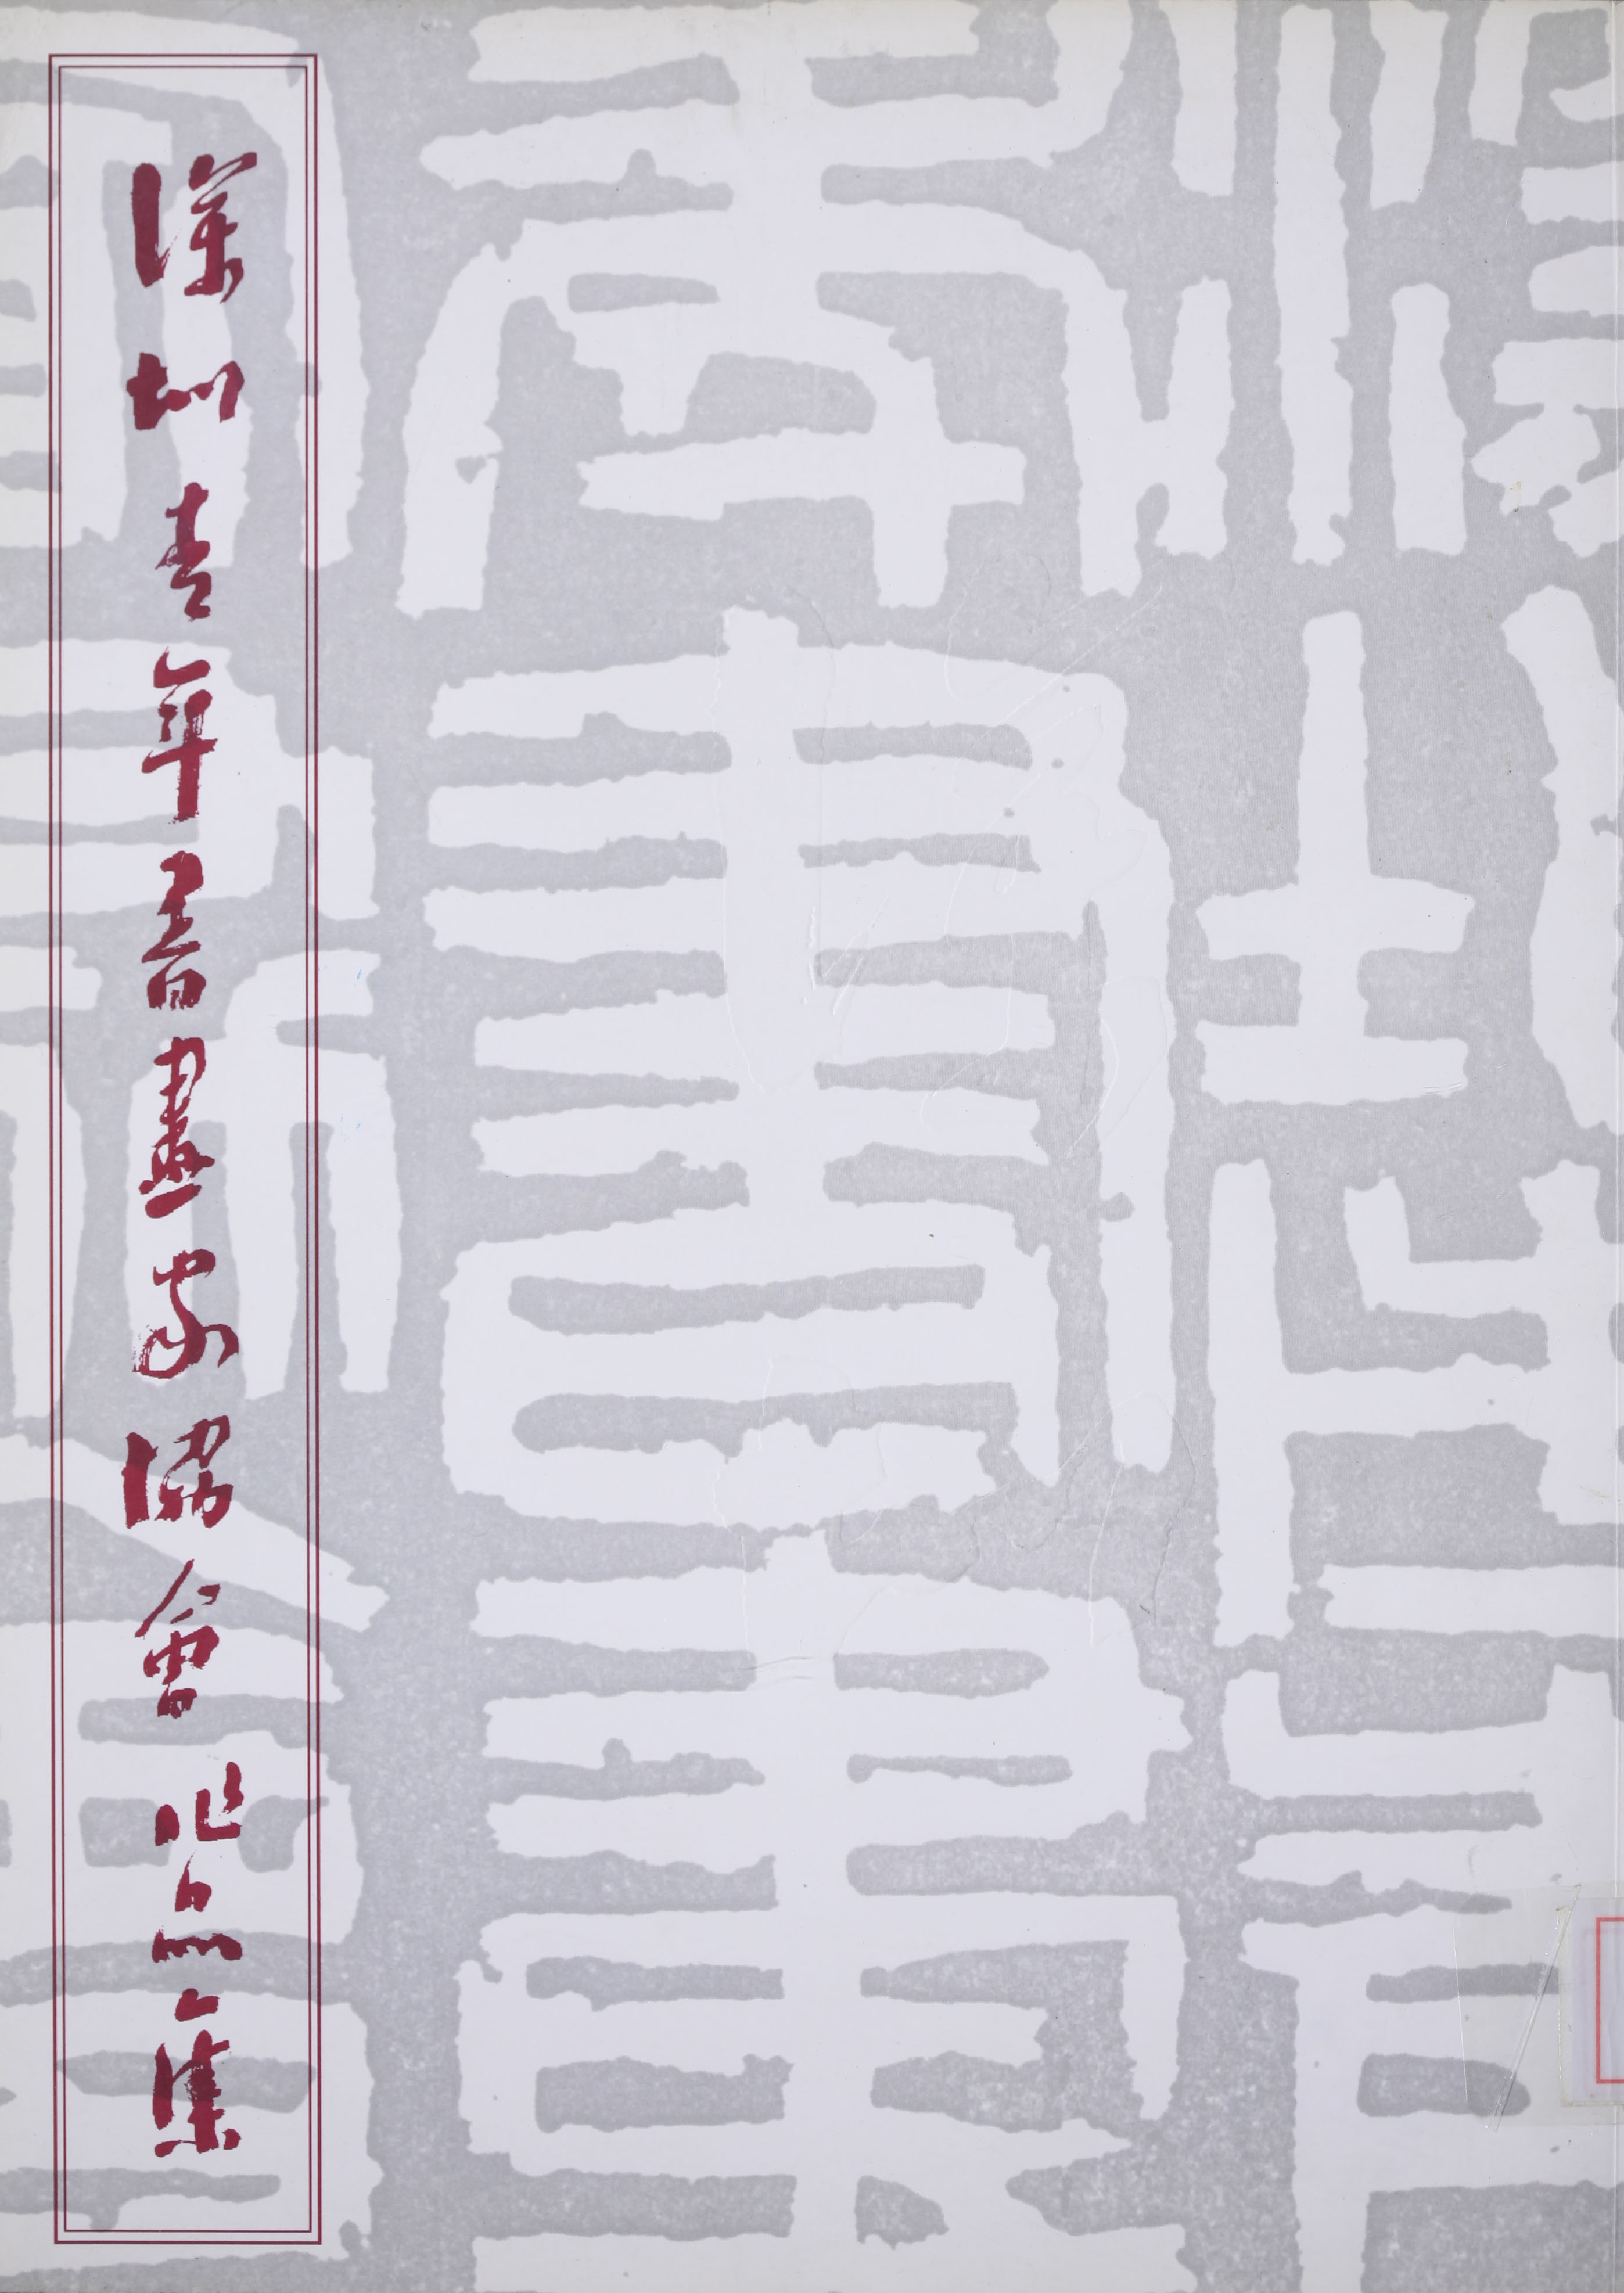 深圳青年書畫家協會作品集